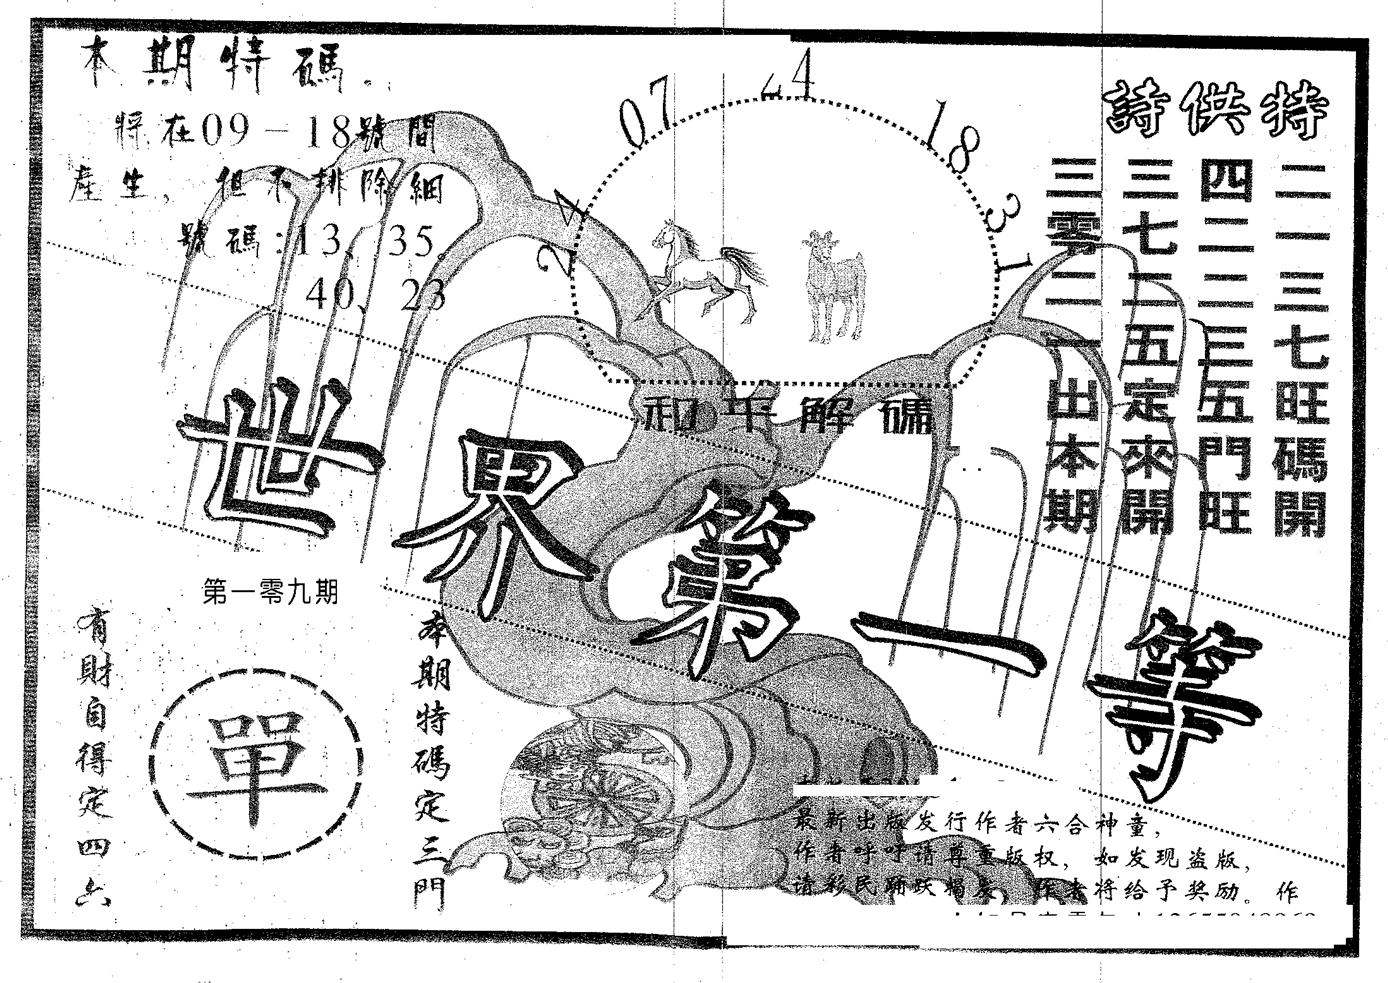 本期特碼。
將在09－18號間
產生，但不排除細
號碼:13、35。
40、23
24
07
24
18
31
特供詩
二一三七旺碼開
四二二三五門旺
三七二五定來開
三零二一出本期
和平解碼
世界第一等
第一零九期
有財自得定四六
單
本期特碼定三門
最新出版发行作者六合神童，
作者呼吁请尊重版权，如发现盗版，
请彩民踊跃揭发，作者将给予奖励。作